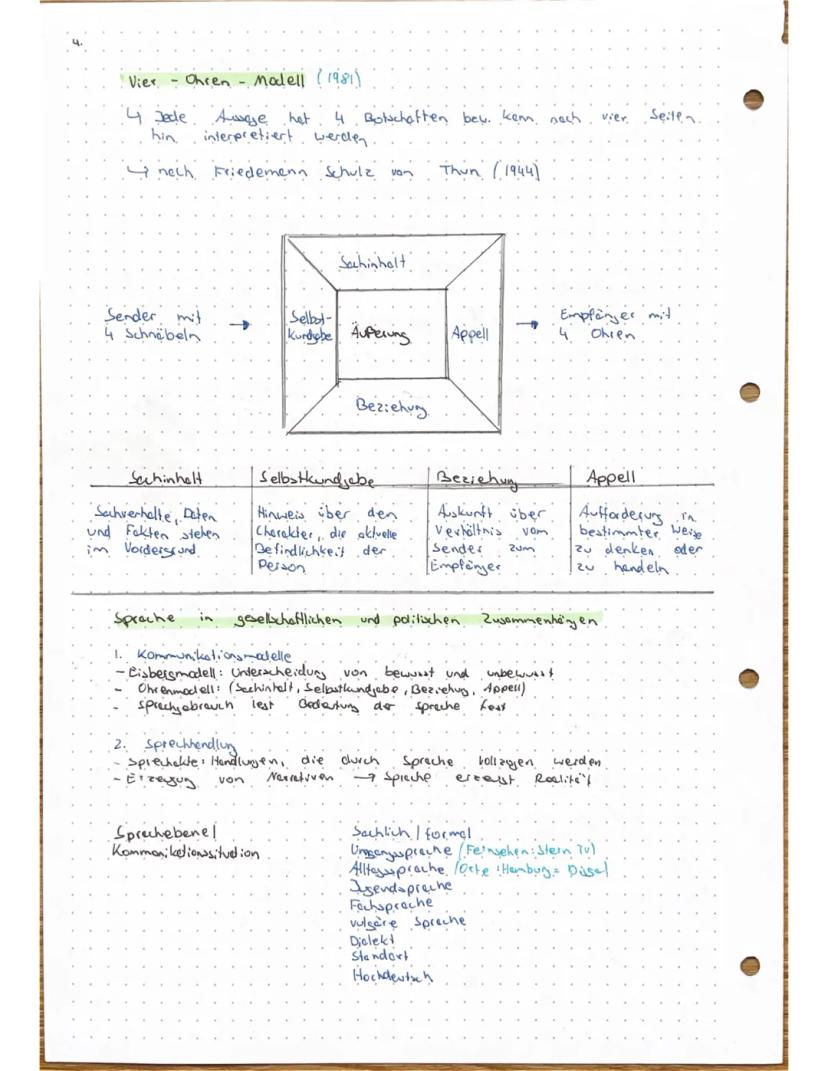 4.
Vier - Ohren - Modell (1981)
↳ Jede Aussage hat 4 Botschaften bzw. kann nach vier Seiten
hin interpretiert werden
↳ nach Friedemann Schulz von Thun (1944)
Sachinhalt
Sender mit
4 Schnäbeln
→
Selbst-
kundgabe
Äußerung
Appell
→
Empfänger mit
4 Ohren
Beziehung
Sachinhalt Selbstkundgabe Beziehung Appell
Sachverhalte, Daten Hinweis über den Auskunft über Aufforderung in
und Fakten stehen Charakter, die aktuelle Verhältnis vom bestimmter Weise
im Vordergrund Befindlichkeit der Sender zum zu denken oder
Person Empfänger zu handeln
Sprache in gesellschaftlichen und politischen Zusammenhängen
1. Kommunikationsmodelle
- Eisbergmodell: Unterscheidung von bewusst und unbewusst
- Ohrenmodell: (Sachinhalt, Selbstkundgabe, Beziehung, Appell)
- Sprachgebrauch legt Bedeutung der Sprache fest
2. Sprechhandlung
- Sprechakte: Handlungen, die durch Sprache vollzogen werden
- Erzeugung von Narrativen → Sprache erzeugt Realität
Sprachebene/ Sachlich / formal
Kommunikationssituation Umgangssprache (Fernsehen: Stern TV)
Alltagssprache (Orte: Hamburg =
Jugendsprache
Fachsprache
vulgäre Sprache
Dialekt
Standart
Hochdeutsch